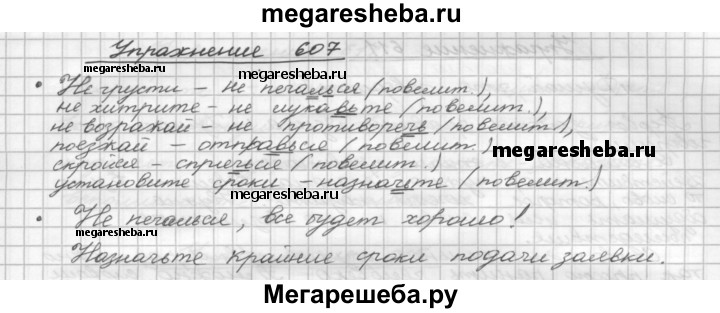 megaresheba.ru
Упражнение 607
megaresheba.ru
• Не грусти – не печалься (повелит.),
не хитрите – не лукавьте (повелит.),
не возражай – не противоречь (повелит.),
поезжай – отправься (повелит.)
скройся – спрячься (повелит.)
megaresheba.ru
установите сроки – назначьте (повелит.)
• Не печалься, все будет хорошо!
megaresheba.ru
Назначьте крайние сроки подачи заявки.
Мегарешеба.ру